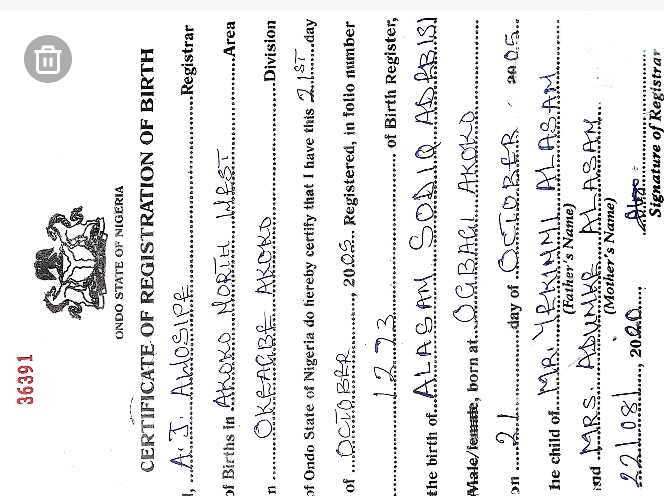 36391
ONDO STATE OF NIGERIA
CERTIFICATE OF REGISTRATION OF BIRTH
I, A. J. AWOSIPE Registrar
of Births in AKOKO NORTH WEST Area
n OKEAGBE AKOKO Division
of Ondo State of Nigeria do hereby certify that I have this 21ST day
of OCTOBER, 2005 Registered, in folio number
1273 of Birth Register,
the birth of ALASAM SODIQ ADEBISI
Male/female, born at OGBAGI AKOKO
on 21 day of OCTOBER 2005
he child of MR. YEKINMI ALASAM
(Father's Name)
nd MRS. ADUNKE ALASAM
(Mother's Name)
22/08/, 2020
Signature of Registrar